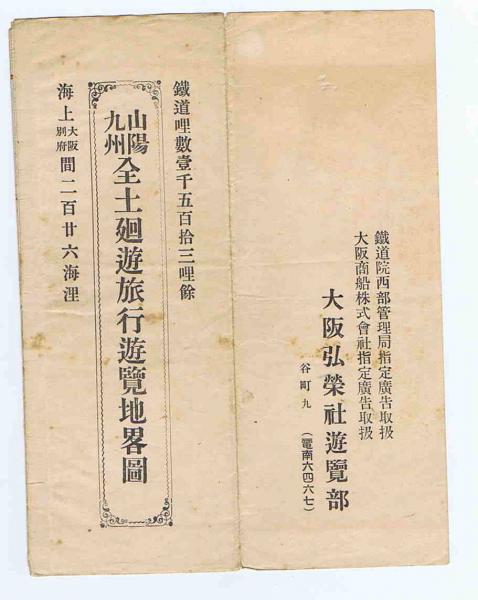 鐵道院西部管理局指定廣告取扱
大阪商船株式會社指定廣告取扱
大阪弘榮社遊覽部
谷町九
(電南六四六七)
鐵道哩數壹千五百拾三哩餘
山陽九州全土廻遊旅行遊覽地畧圖
海上大阪別府間二百廿六海浬